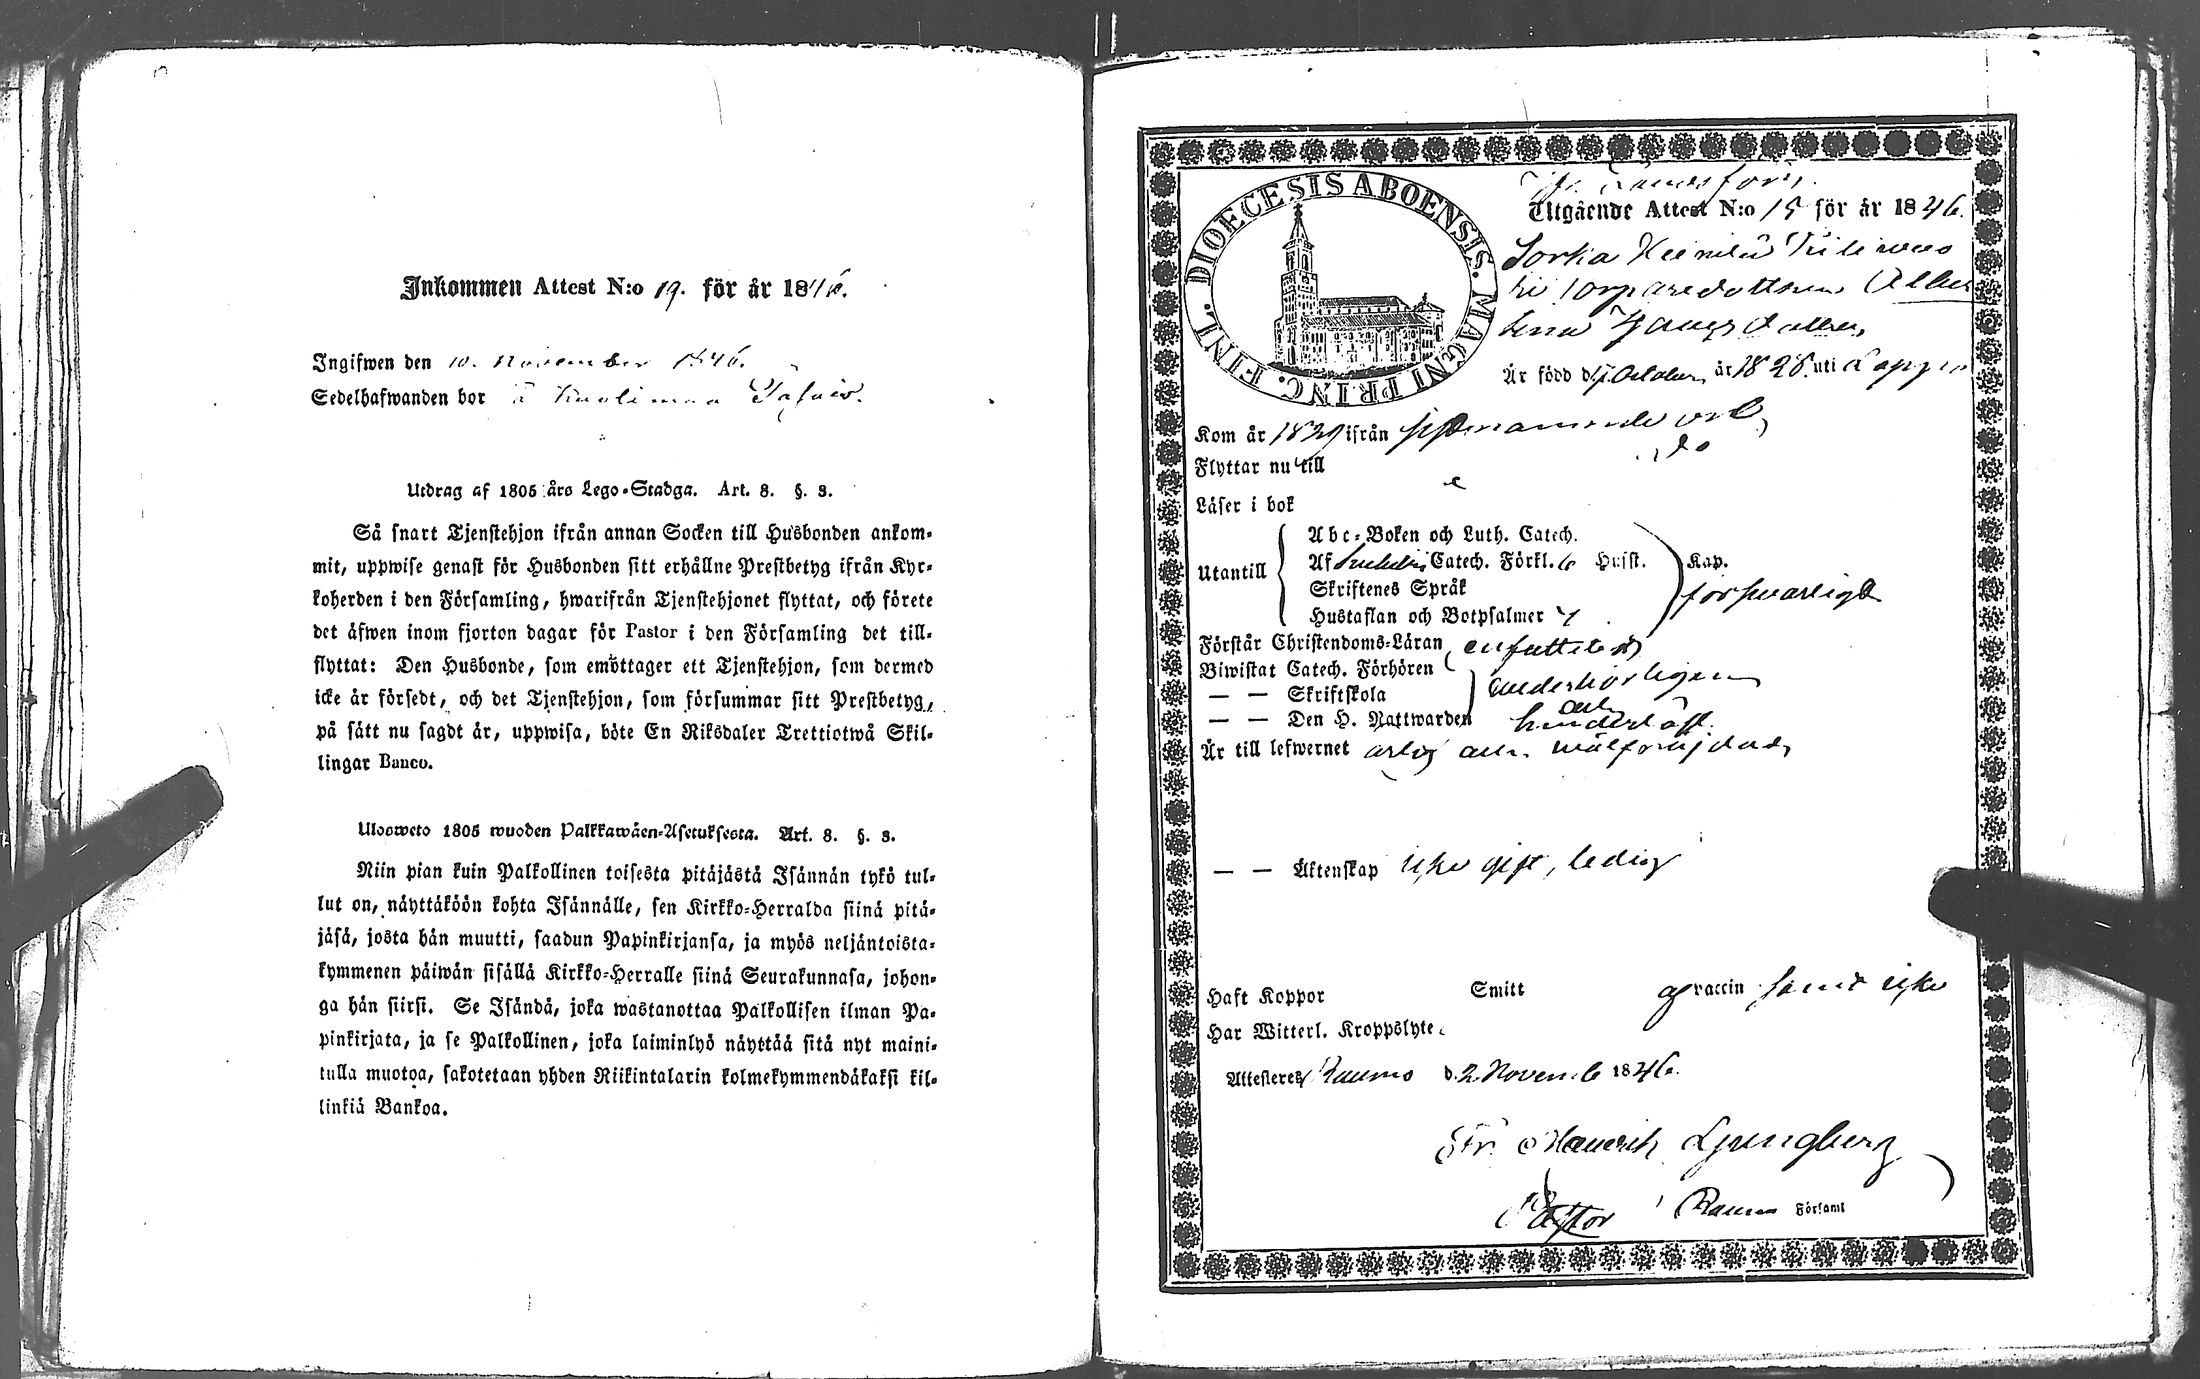 Inkommen Attest N:o 19. för år 1846.
Ingifwen den 10. November 1846.
Sedelhafwanden bor å
Utdrag af 1805 års Lego-Stadga. Art. 8. §. 3.
Så snart Tjenstehjon ifrån annan Socken till Husbonden ankom-
mit, uppwise genast för Husbonden sitt erhållne Prestbetyg ifrån Kyr-
koherden i den Församling, hwarifrån Tjenstehjonet flyttat, och förete
det äfwen inom fjorton dagar för Pastor i den Församling det till-
flyttat: Den Husbonde, som emottager ett Tjenstehjon, som dermed
icke är försedt, och det Tjenstehjon, som försummar sitt Prestbetyg,
på sätt nu sagdt är, uppwisa, böte En Riksdaler Trettiotwå Skil-
lingar Banco.
Ulosweto 1805 wuoden Palkkawäen-Asetuksesta. Art. 8. §. 3.
Niin pian kuin Palkollinen toisesta pitäjästä Isännän tykö tul-
lut on, näyttäköön kohta Isännälle, sen Kirkko-Herralda siinä pitä-
jäsä, josta hän muutti, saadun Papinkirjansa, ja myös neljäntoista-
kymmenen päiwän sisällä Kirkko-Herralle siinä Seurakunnasa, johon-
ga hän siirsi. Se Isändä, joka wastanottaa Palkollisen ilman Pa-
pinkirjata, ja se Palkollinen, joka laiminlyö näyttää sitä nyt maini-
tulla muotoa, sakotetaan yhden Riikintalarin kolmekymmendäkaksi kil-
linkiä Bankoa.
DIOECESIS ABOENSIS. MAGNI PRINC. FINL.
Utgående Attest N:o 15 för år 1846.
Är född d. October år 1828. uti
Kom år 1829 ifrån
Flyttar nu till
Läser i bok
Abc-Boken och Luth. Catech.
Utantill Af Catech. Förkl. 6 Hufst. Kap.
Skriftenes Språk försvarligt
Hustaflan och Botpsalmer
Förstår Christendoms-Läran
Biwistat Catech. Förhören
— — Skriftskola
— — Den H. Nattwarden
Är till lefwernet ärlig och
— — Äktenskap icke gift, ledig
Haft Koppor Smitt vaccin
Har Witterl. Kroppslyte
Attesteres Raumo d. 2 Novemb 1846.
Ljungberg
Pastor i Raumo Församl